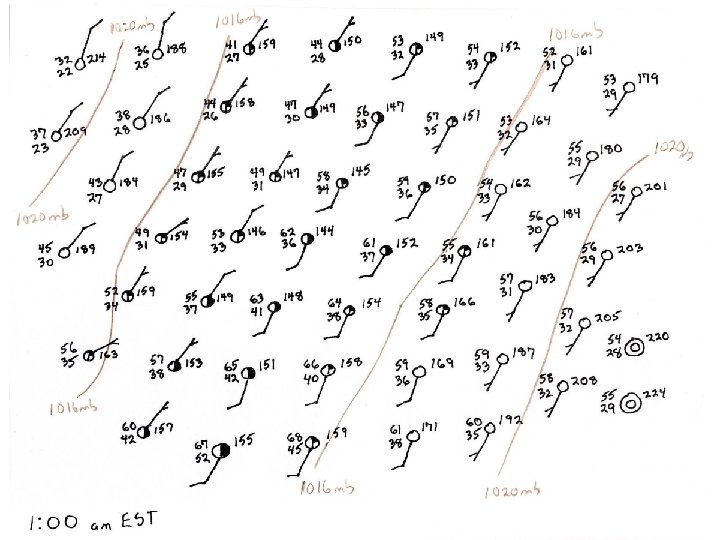 1020mb
1016mb
1016mb
32 214
22
36 188
25
41 159
27
44 150
28
53 149
32
54 152
33
52 161
31
53 179
29
37 209
23
38 186
28
44 158
26
47 149
30
56 147
33
57 151
35
53 164
32
55 180
29
1020mb
43 184
27
47 155
29
49 147
31
58 145
34
59 150
36
54 162
33
56 201
27
1020mb
45 189
30
49 154
31
53 146
33
62 144
36
61 152
37
55 161
34
56 184
30
56 203
29
52 159
34
55 149
37
63 148
41
64 154
38
58 166
35
57 183
31
57 205
32
54 220
28
56 163
35
57 153
38
65 151
42
66 158
40
59 169
36
59 187
33
58 208
32
55 224
29
1016mb
60 157
42
67 155
52
68 159
45
61 171
38
60 192
35
1016mb
1020mb
1:00 am EST